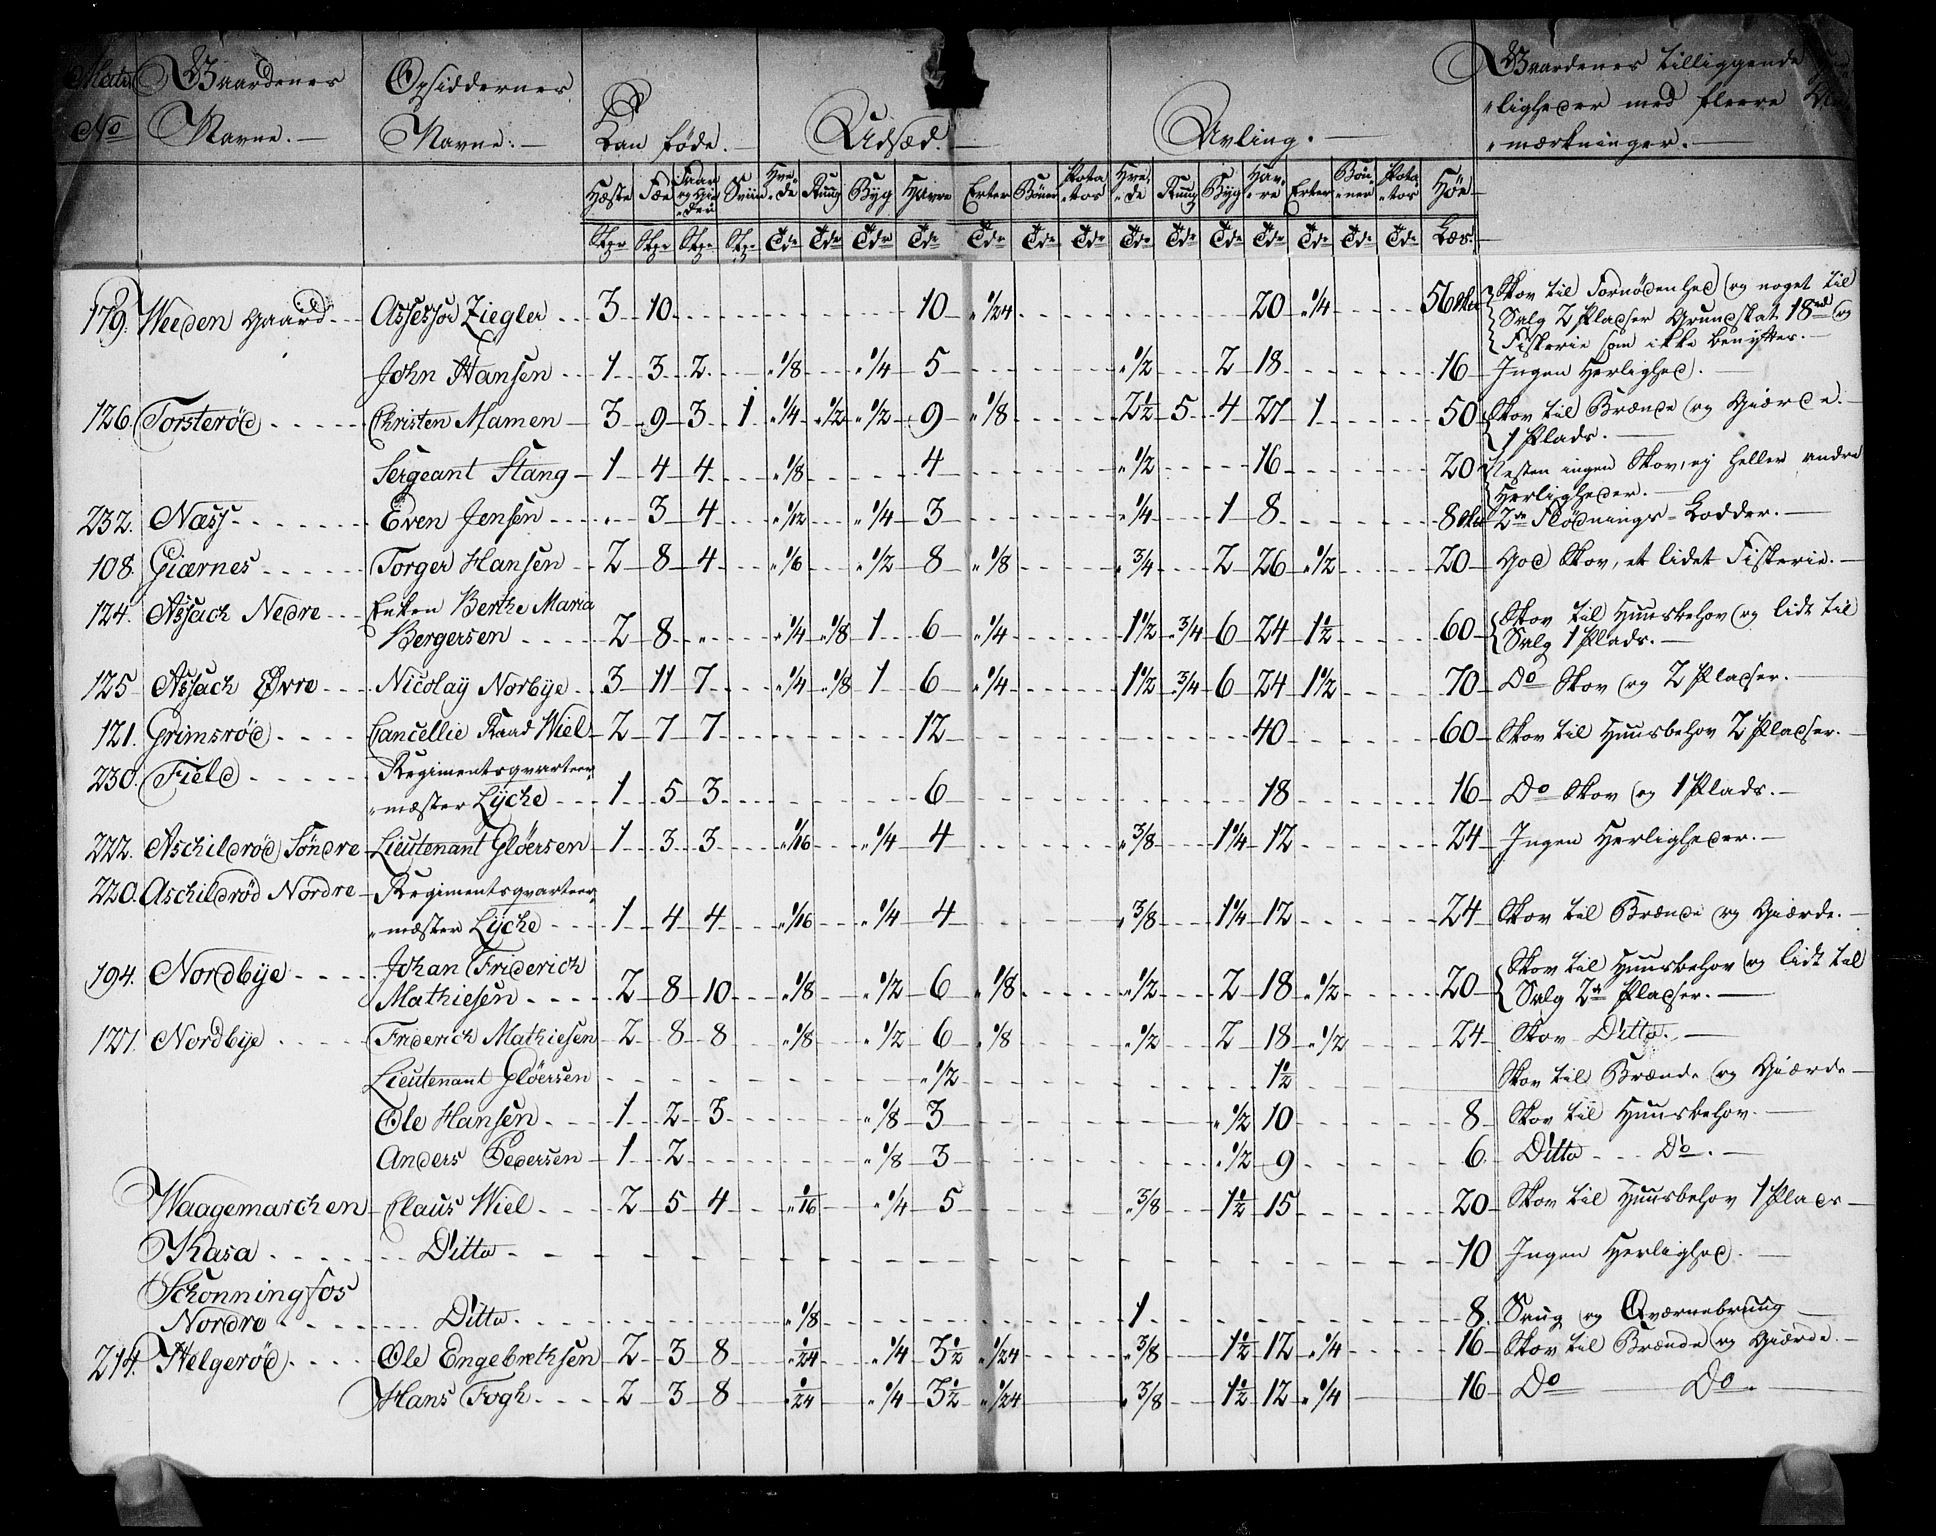 Matr Gaardenes Opsiddernes Gaardenes tilliggende
No Navne. Navne. Kan føde. Udsæd. Avling. "ligheder med fleere
"mærkninger.
Hæste Fæe Faar og Gieder Sviin Hvede Rug Byg Havre Erter Bönner Potatos Hvede Rug Byg Havre Erter Bönner Potatos Höe
Stkr Stkr Stkr Stkr Tdr Tdr Tdr Tdr Tdr Tdr Tdr Tdr Tdr Tdr Tdr Tdr Tdr Tdr Læs.
179. Weeden Gaard Assessor Ziegler 3 10 10 1/24 20 1/4 56 Skov til Fornødenhed og noget til
Salg 2 Pladser Grundskat 18 og
Fiskerie som ikke benyttes.
John Hansen 1 3 2 1/8 1/4 5 1/2 2 18 16 Ingen Herlighed.
126. Torsterød Christen Mamen 3 9 3 1 1/4 1/2 1/2 9 1/8 2 1/2 5 4 27 1 50 Skov til Brænde og Giærde.
1 Plads.
Sergeant Stang 1 4 4 1/8 4 1/2 16 20 Næsten ingen Skov, ej heller andre
Herligheder.
232. Næss Even Jensen 3 4 1/12 1/4 3 1/4 1 8 8 2de Flødnings-Lodder.
108. Giærnes Torger Hansen 2 8 4 1/6 1/2 8 1/8 3/4 2 26 1/2 20 God Skov, et lidet Fiskerie.
124. Assach Nedre Enken Berthe Maria
Bergersen 2 8 " 1/4 1/8 1 6 1/4 1 1/2 3/4 6 24 1 1/2 60 Skov til Huusbehov og lidt til
Salg 1 Plads.
125 Assach Øvre Nicolay Norbye 3 11 7 1/4 1/8 1 6 1/4 1 1/2 3/4 6 24 1 1/2 70 Do Skov og 2 Pladser.
121. Grimsrød Cancellie Raad Wiel 2 7 7 12 40 60 Skov til Huusbehov 2 Pladser.
230. Field Regimentsqvarteer
"mæster Lyche 1 5 3 6 18 16 Do Skov og 1 Plads.
222. Aschildrød Söndre Lieutenant Glöersen 1 3 3 1/16 1/4 4 3/8 1 1/4 12 24 Ingen Herligheder.
220. Aschildrød Nordre Regimentsqvarteer
"mæster Lyche 1 4 4 1/16 1/4 4 3/8 1 1/4 12 24 Skov til Brænde og Giærde.
194. Nordbye Johan Friderich
Mathiesen 2 8 10 1/8 1/2 6 1/8 1/2 2 18 1/2 20 Skov til Huusbehov og lidt til
Salg 2de Pladser.
127. Nordbye Friderich Mathiesen 2 8 8 1/8 1/2 6 1/8 1/2 2 18 1/2 24 Skov Ditto.
Lieutenant Glöersen 1/2 1 1/2 Skov til Brænde og Giærde
Ole Hansen 1 2 3 1/8 3 1/2 10 8 Skov til Huusbehov.
Anders Pedersen 1 2 1/8 3 1/2 9 6 Ditto Do.
Waagemarchen Claus Wiel 2 5 4 1/16 1/4 5 3/8 1 1/2 15 20 Skov til Huusbehov 1 Plads
Kasa Ditto 10 Ingen Herlighed.
Schonningfos
Nordre Ditto 1/8 1 8. Saug og Qværnebrug
214. Helgerød Ole Engebrethsen 2 3 8 1/24 1/4 3 1/2 1/24 3/8 1 1/2 12 1/4 16 Skov til Brænde og Giærde.
Hans Fogh 2 3 8 1/24 1/4 3 1/2 1/24 3/8 1 1/2 12 1/4 16 Do Do.